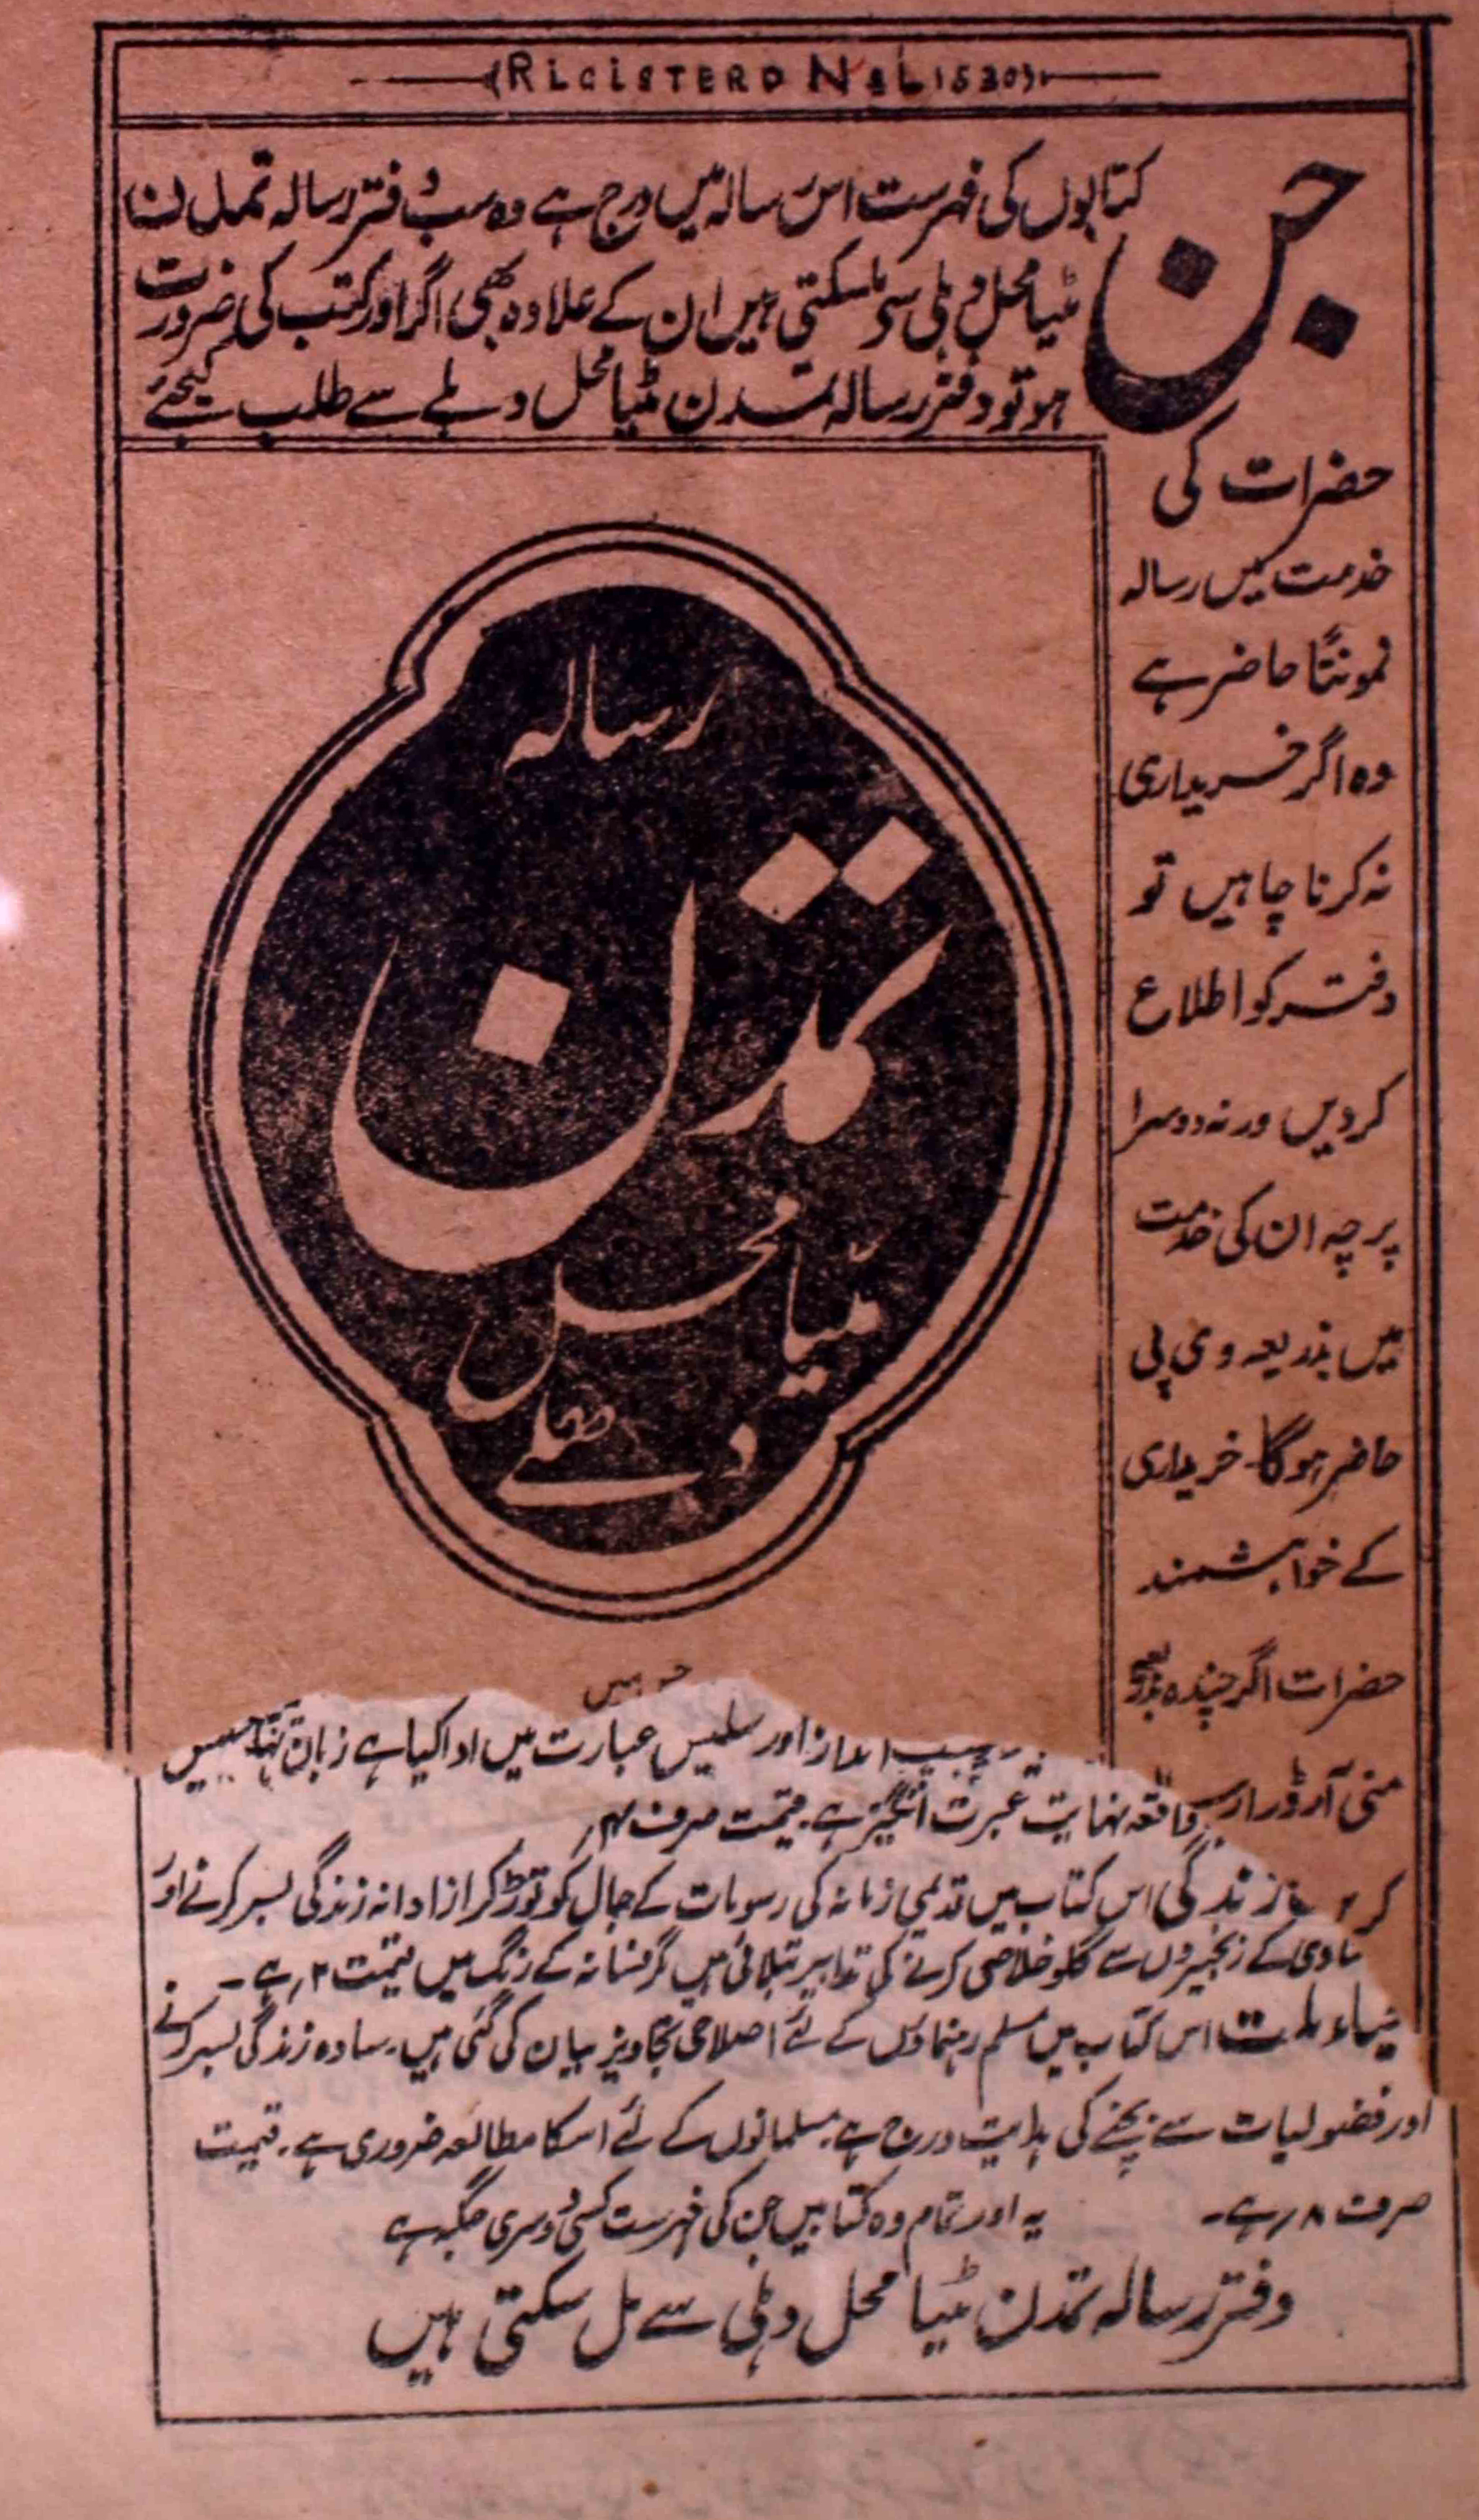 (RIGISTERD No L 1530)
جن
کتابوں کی فہرست اس رسالہ میں درج ہے وہ سب دفتر رسالہ تمدن
مٹیا محل دہلی سے مل سکتی ہیں ان کے علاوہ بھی اگر اور کتب کی ضرورت
ہو تو دفتر رسالہ تمدن مٹیا محل دہلی سے طلب کیجئے
حضرات کی
خدمت میں رسالہ
نمونتاً حاضر ہے
وہ اگر خریداری
نہ کرنا چاہیں تو
دفتر کو اطلاع
کردیں ورنہ دوسرا
پرچہ ان کی خدمت
میں بذریعہ وی پی
حاضر ہوگا۔ خریداری
کے خواہشمند
حضرات اگر چندہ بذریعہ
منی آرڈر ارسال
کر
رسالہ
تمدن
مٹیا محل
دہلی
انداز اور سلیس عبارت میں ادا کیا ہے زبان
واقعہ نہایت عبرت انگیز ہے۔ قیمت صرف ۴؍
زندگی اس کتاب میں قدیمی زمانہ کی رسومات کے جال کو توڑ کر ازادانہ زندگی بسر کرنے اور
شادی کے زنجیروں سے گلو خلاصی کرنے کی تدابیر بتلائی ہیں مگر فسانہ کے رنگ میں قیمت ۲؍ ہے۔
ملت اس کتاب میں مسلم رہنماؤں کے لئے اصلاحی تجاویز بیان کی گئی ہیں۔ سادہ زندگی بسر کرنے
اور فضولیات سے بچنے کی ہدایت درج ہے۔ مسلمانوں کے لئے اسکا مطالعہ ضروری ہے۔ قیمت
صرف ۸؍ ہے۔ یہ اور تمام وہ کتابیں جن کی فہرست کسی دوسری جگہ ہے
دفتر رسالہ تمدن مٹیا محل دہلی سے مل سکتی ہیں